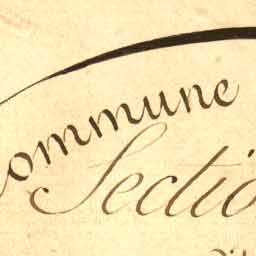 Commune
Sectio